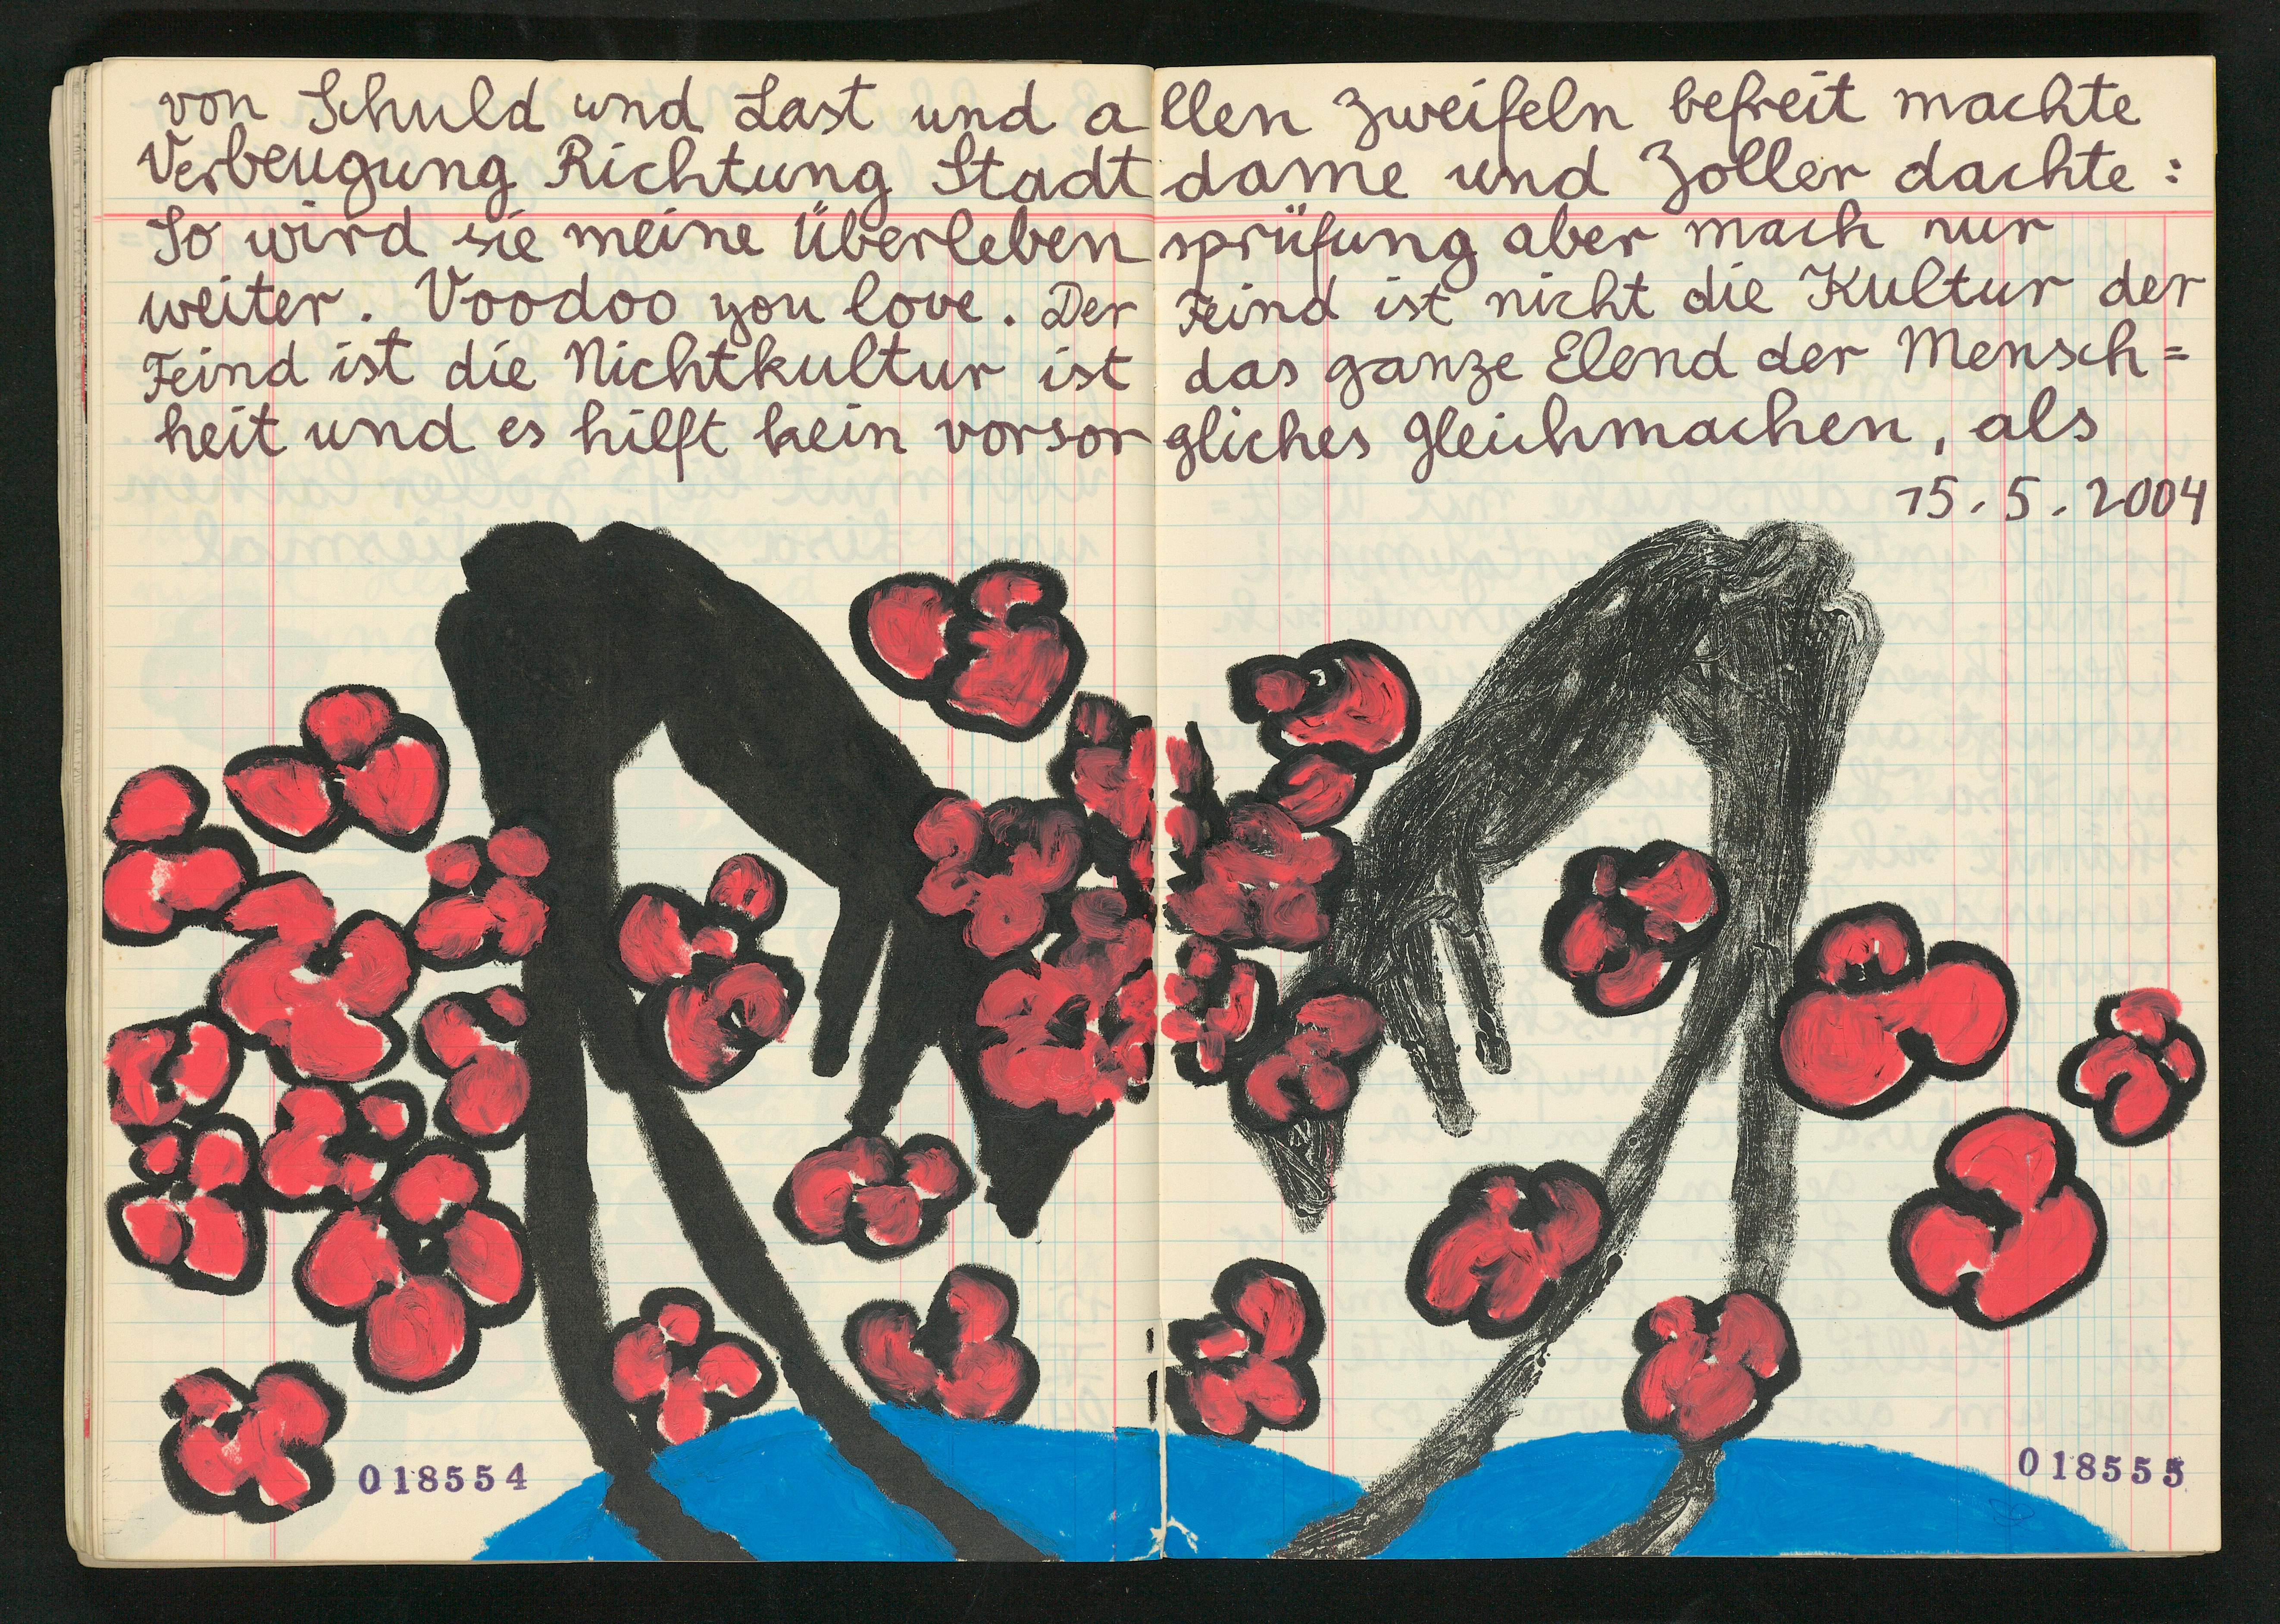 von Schuld und Last und allen Zweifeln befreit machte
Verbeugung Richtung Stadtdame und Zoller dachte :
So wird sie meine Überlebensprüfung aber mach nur
weiter. Voodoo you love. Der Feind ist nicht die Kultur der
Feind ist die Nichtkultur ist das ganze Elend der Mensch=
heit und es hilft kein vorsorgliches gleichmachen, als
15.5.2004
018554
018555